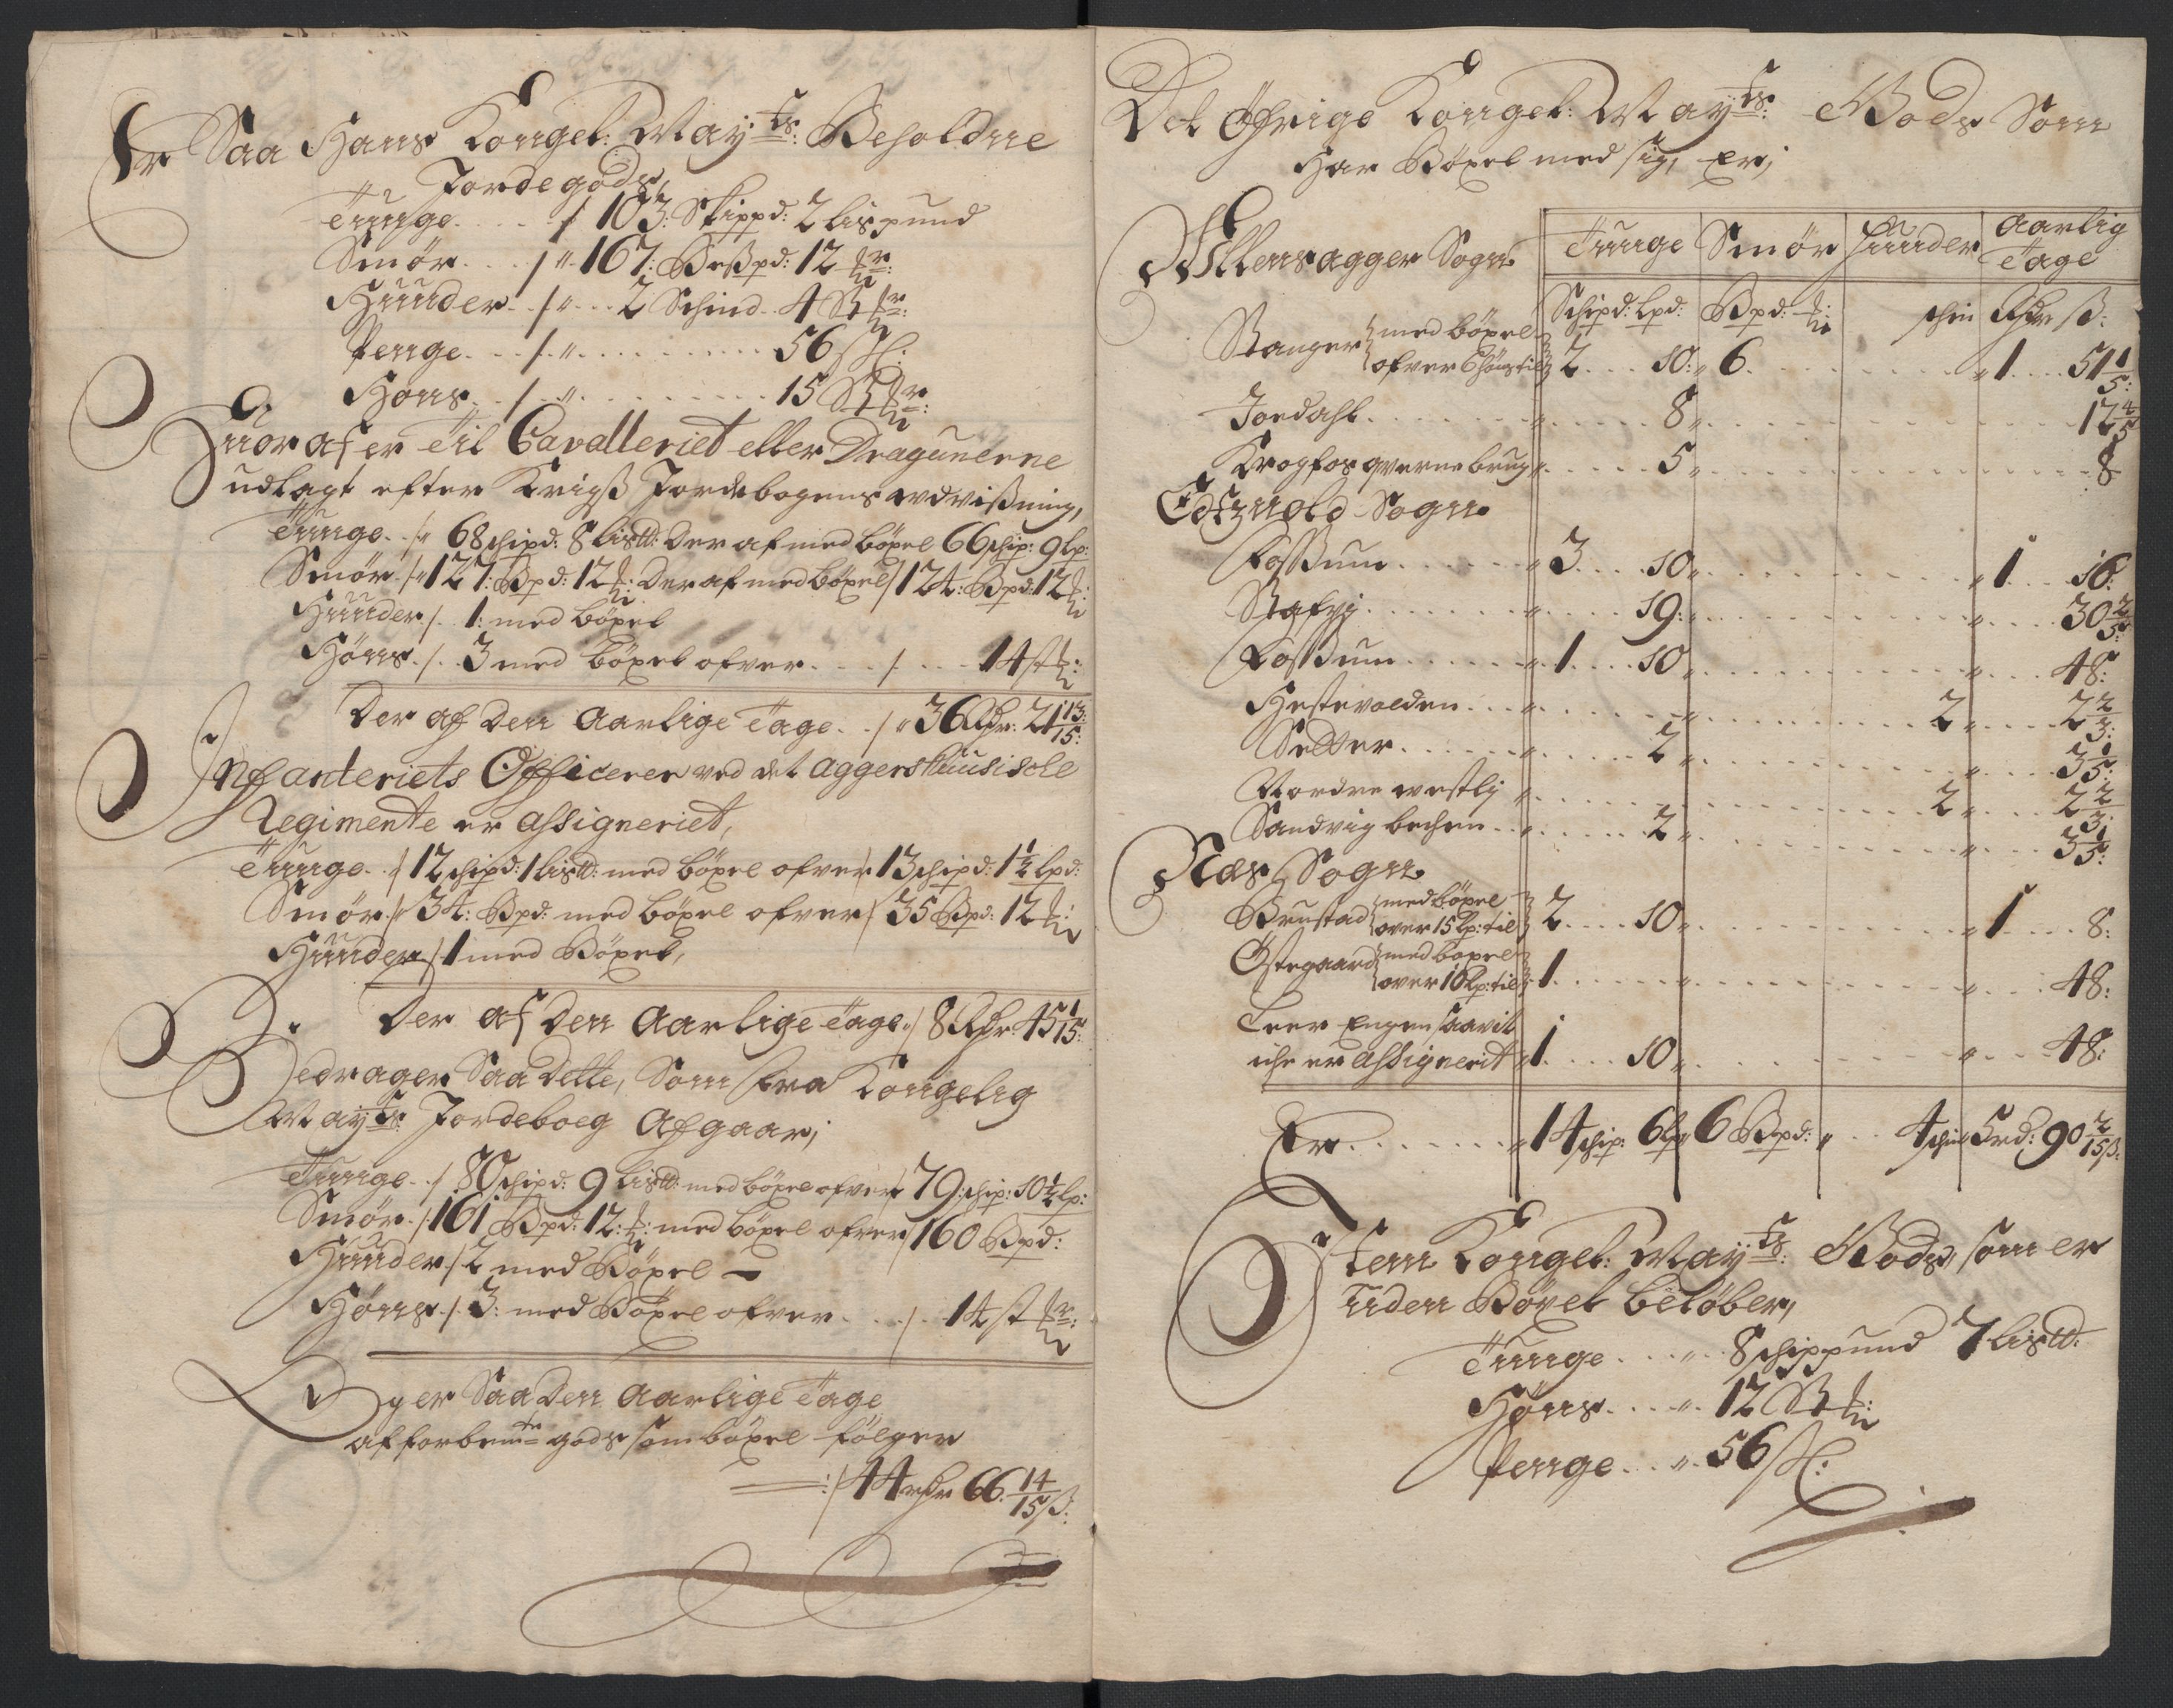 Er Saa Hans Kongel: May:ts: Beholdne
Jordegods,
Tunge . . . . / 103: Skippd: 2 lispund
Smør . . . / " 167: Bißpd: 12
Huuder . . / " . . . 2 Schind . 4
Penge . . . / " . . . . . . . . . . 56
Høns . . / " . . . . . . . . . . 15
Huoraf er Til Cavalleriet eller Dragunerne
udlagt efter Krigß Jordebogens udvißning,
Tunge . . / " 68 schipd: 8 list: Der af med böxel 66 schip: 9 lp:
Smør . / " 127: Bpd: 12 : Der af med böxel / 124: Bpd: 12
Huuder / . 1: med böxel
Høns . / . . 3 med böxel ofver . . . . / . . . 14 st
Der af Den Aarlige Tage . . / " 36 Rdr: 21 13/15:
Infanteriets Officerer ved det Aggershuusische
Regimente er Assigneriet,
Tunge . . / 12 schipd: 1 list: med böxel ofver / 13 schipd: 1 1/2 lpd:
Smør / " 34: Bpd: med böxel ofver / 35 Bpd: 12
Huuder / 1 med Böxel,
Der af Den Aarlige Tage " / 8 Rdr: 45 1/15:
Bedrager Saa dette, Som fra Kongelig
May:ts: Jordeboeg Afgaar;
Tunge . . / 80 schipd: 9 list: med böxel ofver / 79: schip: 10 1/2 lp:
Smør . / 161 Bpd: 12: : med böxel ofver / 160 Bpd:
Huuder / 2 med Böxel
Høns . / . 3: med Böxel ofver . . . . / . 14 st
er Saa Den Aarlige Tage
af forbemte gods som böxel følger
/ 44 rdr 66 14/15 ß:
Det Øfrige Kongel: May:ts: Gods Som
Har Böxel med sig, Er;
Ullensagger Sogn
Tunge Smør Huuder Aarlig Tage
Schipd: Lpd: Bpd: schin Rdr ß:
Stanger med böxel ofver 6 til 2 . . . 10: " 6 . . . . . . " 1 . . . 51 1/5:
Jordahl . . . . . . . . 8 " . . . . . . 12 4/5
Krogfos qvernebrug " . . . . 5 " . . . . . . 8
Edtzvold Sogn
Fossum . . . . . . " 3 . . . 10 " . . . . . . " 1 . . . 16:
. . . . . . . " . . . . 19: " . . . . . . " . . . . 30 2/5:
Fossum . . . . . . " 1 . . . 10 " . . . . . . " . . . . 48:
Hestevolden . . . " . . . . . . " . . . . . . 2 " . . . . 2 2/3:
Setter . . . . . . " . . . . . 2 " . . . . . . " . . . . 3 1/5:
Nordre westly " . . . . . . . . . . . . . 2 " . . . . 2 2/3:
Sandvig bechen . . " . . . . . 2 " . . . . . . " . . . . 3 1/5:
Næs Sogn
Brustad med böxel over 15 lp: til 2 . . . . 10 " . . . . . . " 1 . . . . 8:
Østegaard med böxel over 10 lp: til 1 . . . . . . " . . . . . . " . . . . 48:
Leer Engen saavit
iche er Assignerit " 1 . . . . 10 " . . . . . . " . . . . 48:
Er . . . . . . . " 14 schip: 6 lp " 6 Bpd: " . . . 4 schin 5 rd: 90 2/15 ß:
Item Kongel: May:ts: Gods, som er
uden Böxel beløber,
Tunge . . . . " . . 8 schippund 7 list:
Høns . . . . " . . 12
Penge . . . " . 56